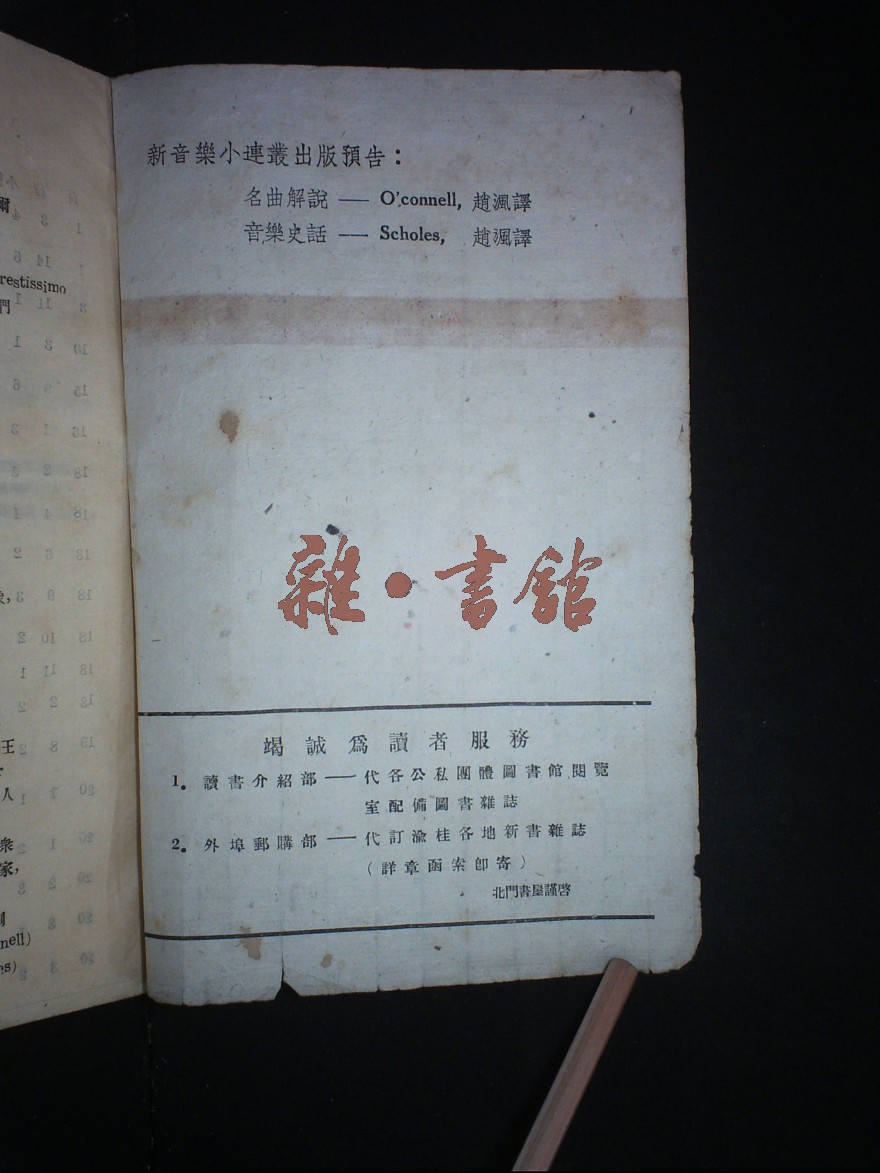 新音樂小連叢出版預告：
名曲解說 — O'connell, 趙渢譯
音樂史話 — Scholes, 趙渢譯
雜·書舘
竭誠爲讀者服務
1. 讀書介紹部——代各公私團體圖書館閱覽
室配備圖書雜誌
2. 外埠郵購部——代訂渝桂各地新書雜誌
（詳章函索卽寄）
北門書屋謹啓
爾
restissimo
們
王
人
衆
家,
nell)
es)